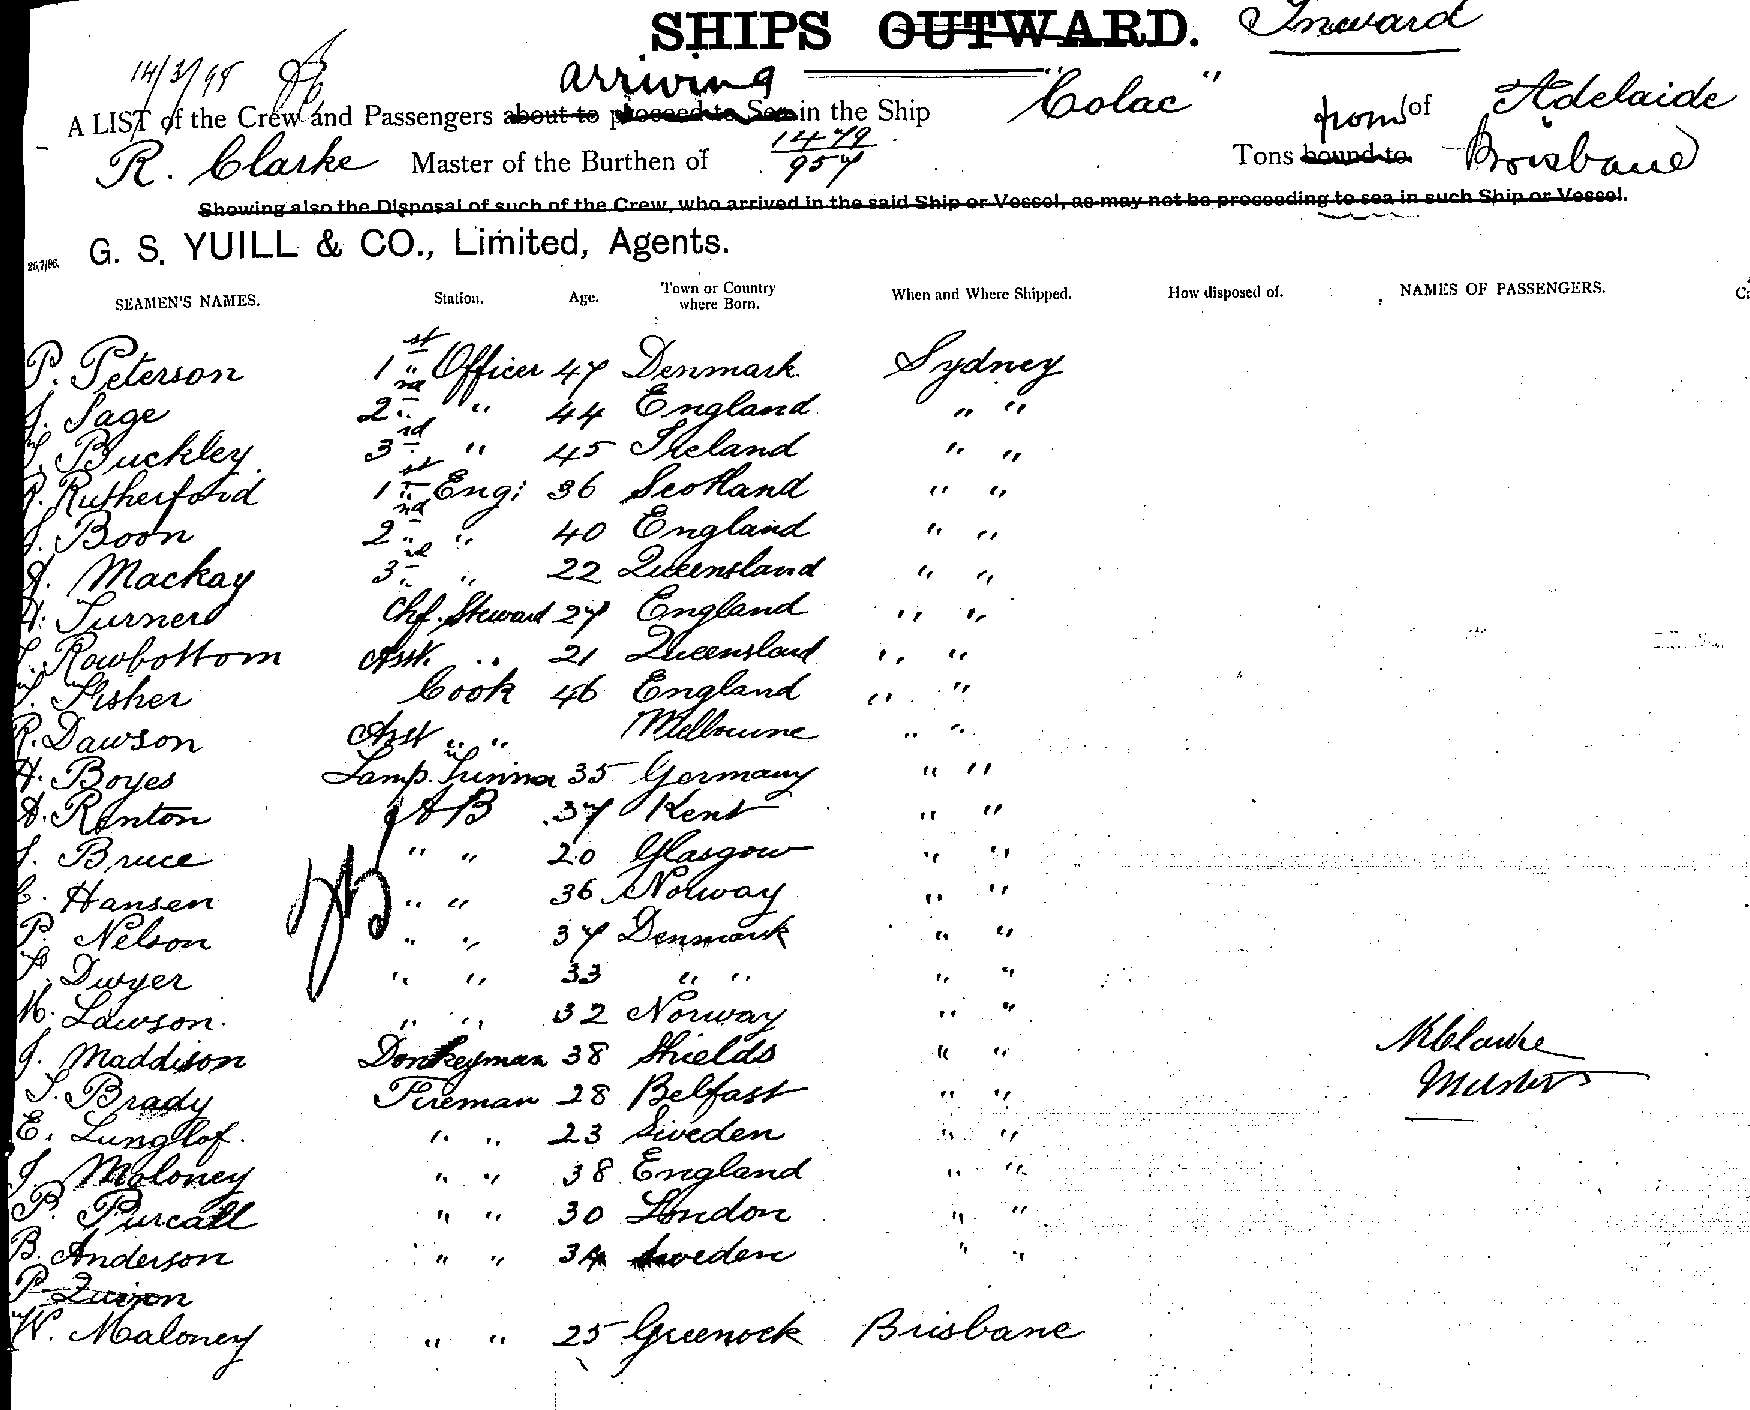 SHIPS OUTWARD. Inward
14/3/98 arriving
A LIST of the Crew and Passengers about to proceed to Sea in the Ship "Colac" from of Adelaide
R. Clarke Master of the Burthen of 1479/957 Tons bound to Brisbane
Showing also the Disposal of such of the Crew, who arrived in the said Ship or Vessel, as may not be proceeding to sea in such Ship or Vessel.
26/7/96. G. S. YUILL & CO., Limited, Agents.
SEAMEN'S NAMES. Station. Age. Town or Country where Born. When and Where Shipped. How disposed of. NAMES OF PASSENGERS.
P. Peterson 1st Officer 47 Denmark Sydney
J. Sage 2nd " 44 England " "
Buckley 3rd " 45 Ireland " "
R. Rutherford 1st Eng: 36 Scotland " "
J. Boon 2nd " 40 England " "
Mackay 3rd " 22 Queensland " "
H. Turner Chf. Steward 27 England " "
Rowbottom Asst. " 21 Queensland " "
Fisher Cook 46 England " "
R. Dawson Asst " " Melbourne " "
H. Boyes Lamp Trimmer 35 Germany " "
A. Renton A B 37 Kent " "
J. Bruce " " 20 Glasgow " "
C. Hansen " " 36 Norway " "
P. Nelson " " 37 Denmark " "
Dwyer " " 33 " " " "
M. Lawson. " " 32 Norway " "
J. Maddison Donkeyman 38 Shields " " R Clarke
Brady Fireman 28 Belfast " " Master
E. Lunglof. " " 23 Sweden " "
J. Moloney " " 38 England " "
P. Purcall " " 30 London " "
B. Anderson " " 34 Sweden " "
P. Quinn
W. Maloney " " 25 Greenock Brisbane